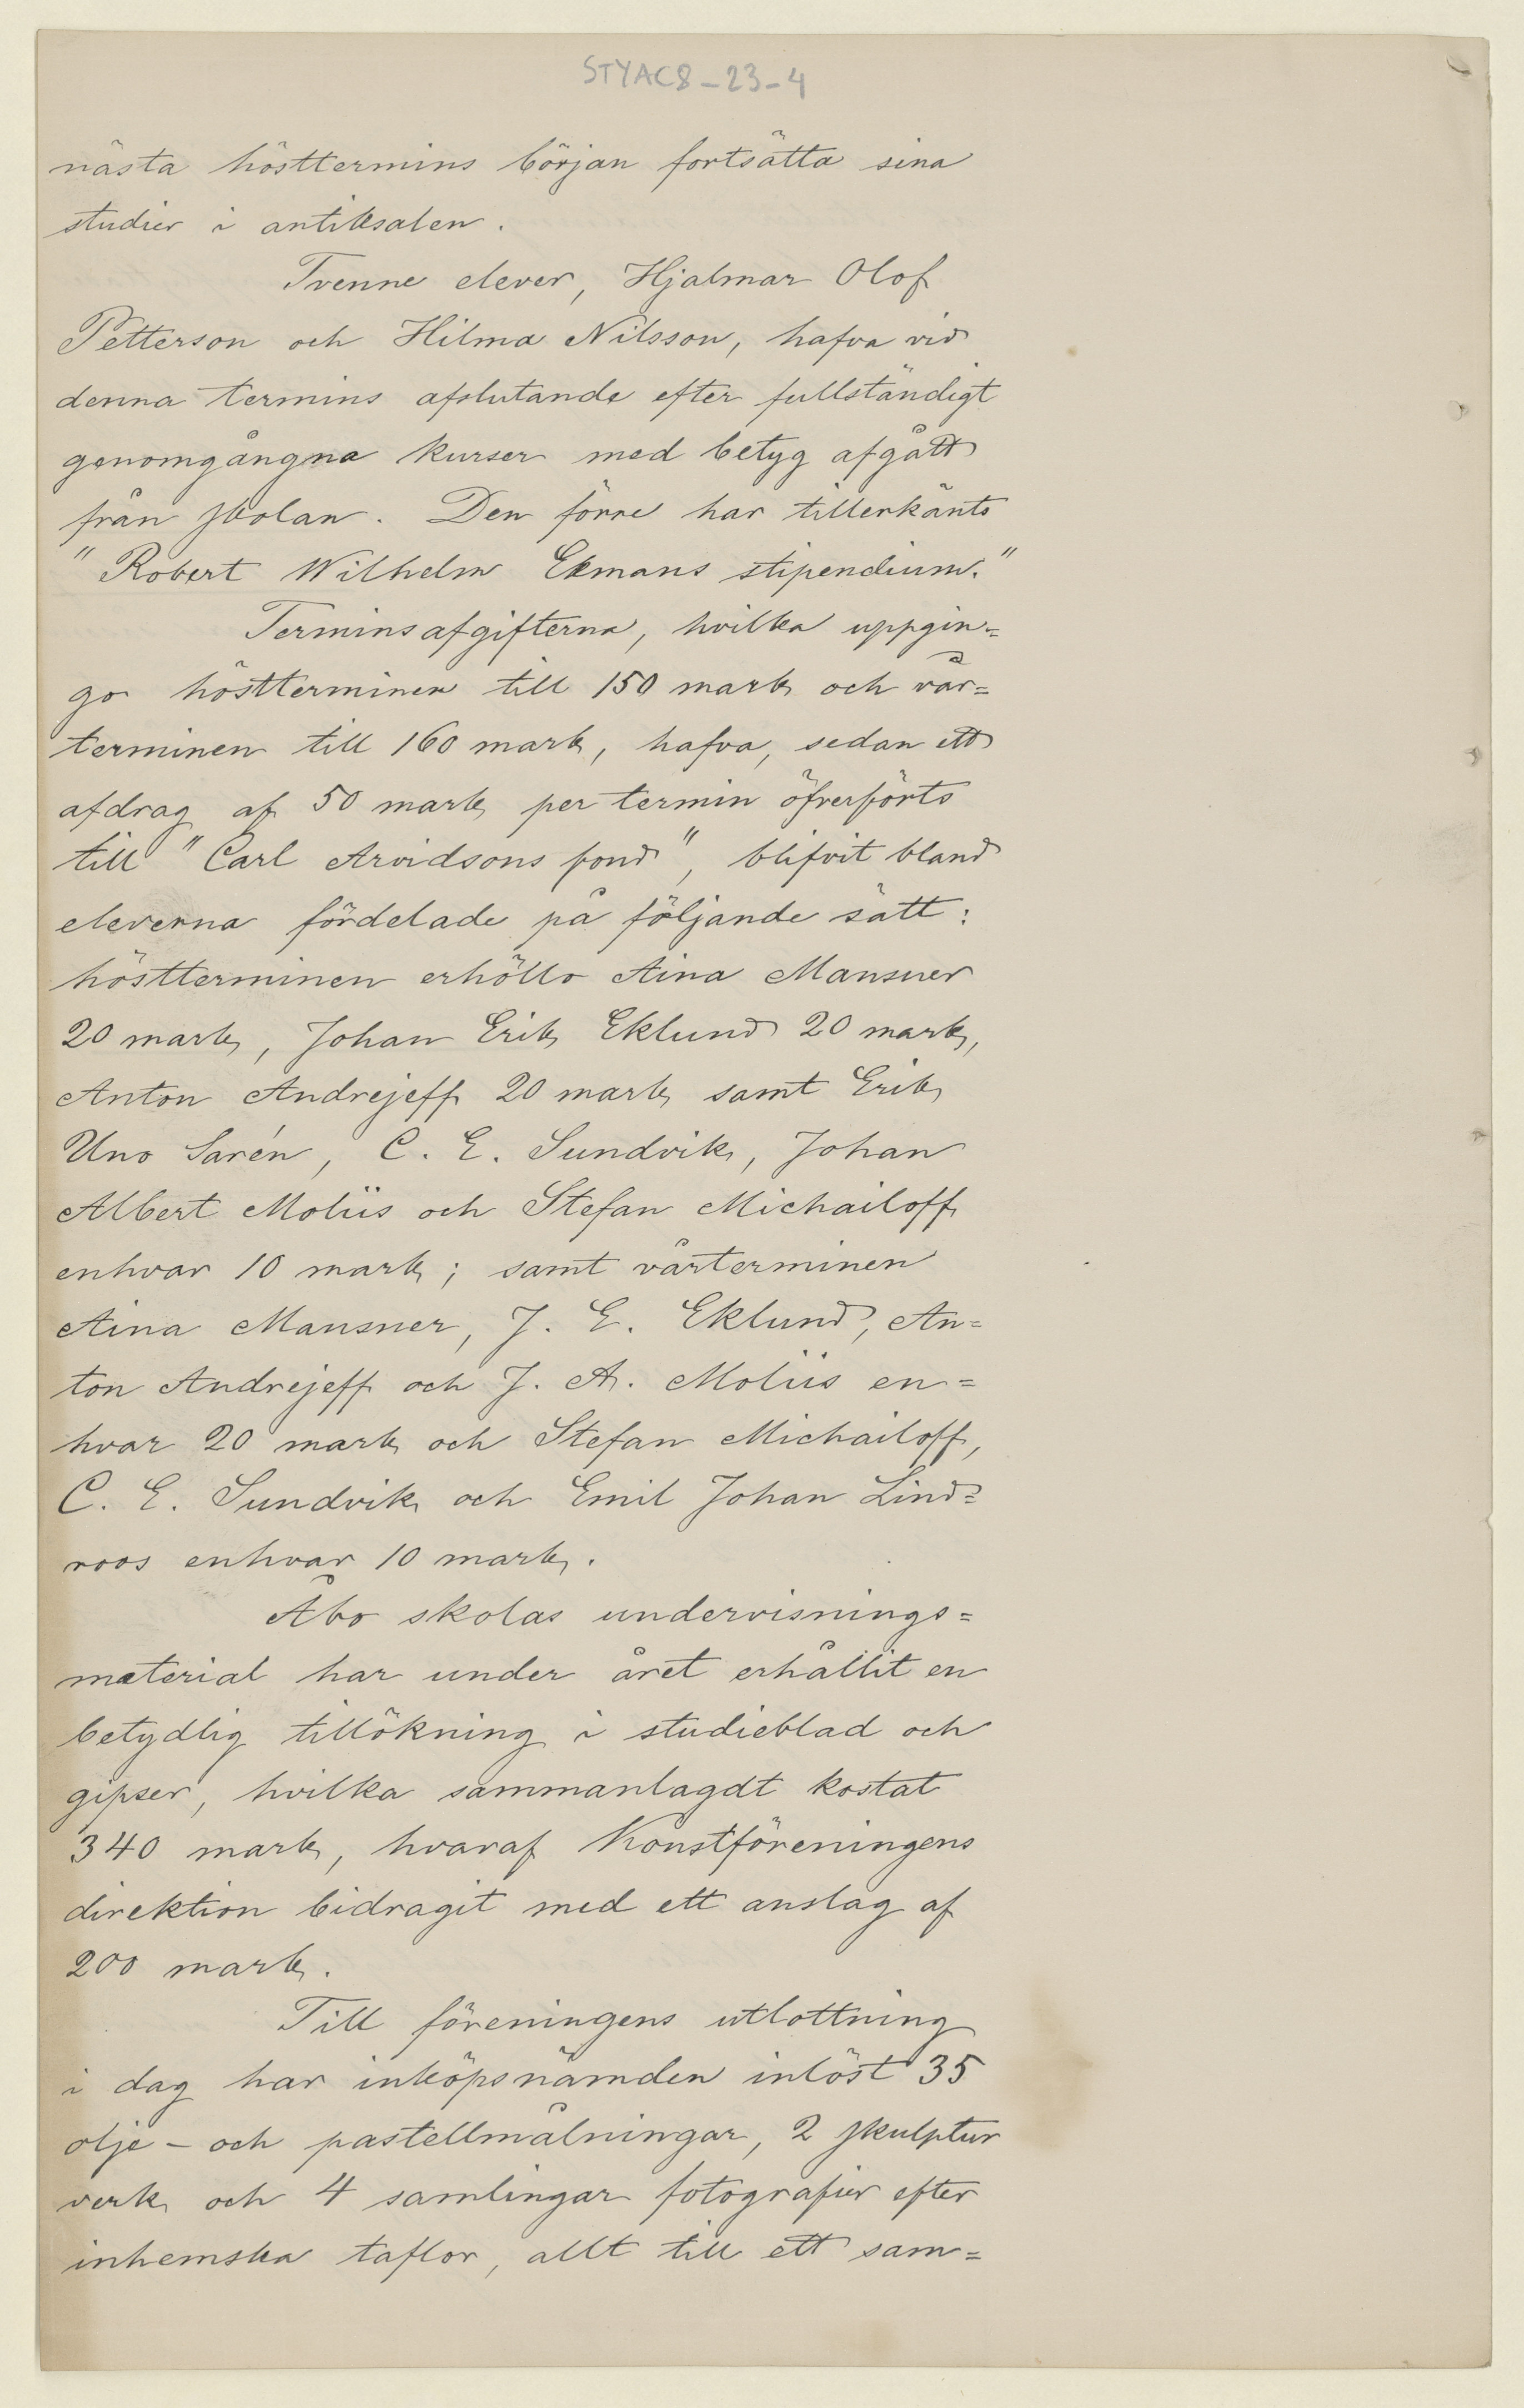 STYAC8-23-4
nästa hösttermins början fortsätta sina
studier i antiksalen.
Tvenne elever, Hjalmar Olof
Petterson och Hilma Nilsson, hafva vid
denna termins afslutande efter fullständigt
genomgångna kurser med betyg afgått
från skolan. Den förre har tillerkänts
"Robert Wilhelm Ekmans stipendium."
Terminsafgifterna, hvilka uppgin=
go höstterminen till 150 mark och vår=
terminen till 160 mark, hafva, sedan ett
afdrag af 50 mark per termin öfverförts
till "Carl Arvidsons fond", blifvit bland
eleverna fördelade på följande sätt:
höstterminen erhöllo Aina Mansner
20 mark, Johan Erik Eklund 20 mark,
Anton Andrejeff 20 mark samt Erik
Uno Sarén, C. E. Sundvik, Johan
Albert Moliis och Stefan Michailoff
enhvar 10 mark; samt vårterminen
Aina Mansner, J. E. Eklund, An=
ton Andrejeff och J. A. Moliis en=
hvar 20 mark och Stefan Michailoff,
C. E. Sundvik och Emil Johan Lind=
roos enhvar 10 mark.
Åbo skolas undervisnings=
material har under året erhållit en
betydlig tillökning i studieblad och
gipser, hvilka sammanlagdt kostat
340 mark, hvaraf Konstföreningens
direktion bidragit med ett anslag af
200 mark.
Till föreningens utlottning
i dag har inköpsnämden inlöst 35
olje- och pastellmålningar, 2 skulptur
verk och 4 samlingar fotografier efter
inhemska taflor, allt till ett sam=